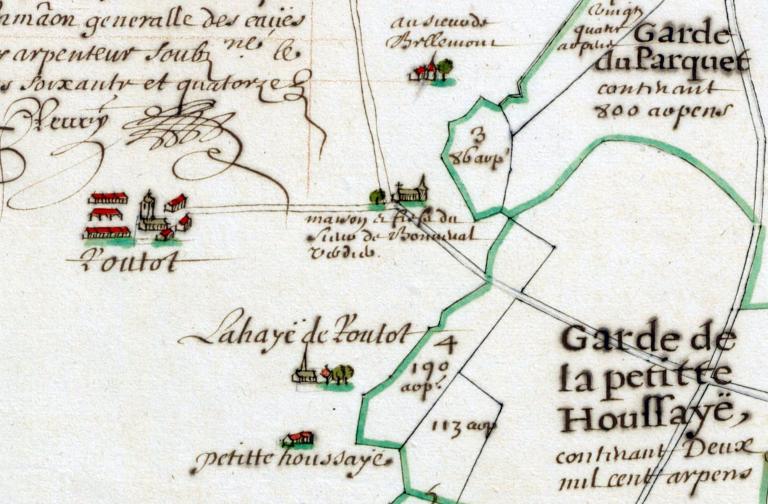 generalle des eaües
arpenteur soub
soixante et quatorze
au sieur de
Bellemont
vingt
quatre
arpens
Garde
du Parquet
continant
800 arpens
3
86 arp.
maison & fief du
sieur de Bonneval
Routot
Lahayë de Routot
4
190
arp.
113 arp
petitte houssaye
Garde de
la petitte
Houssayë,
continant Deux
mil cent arpens
6